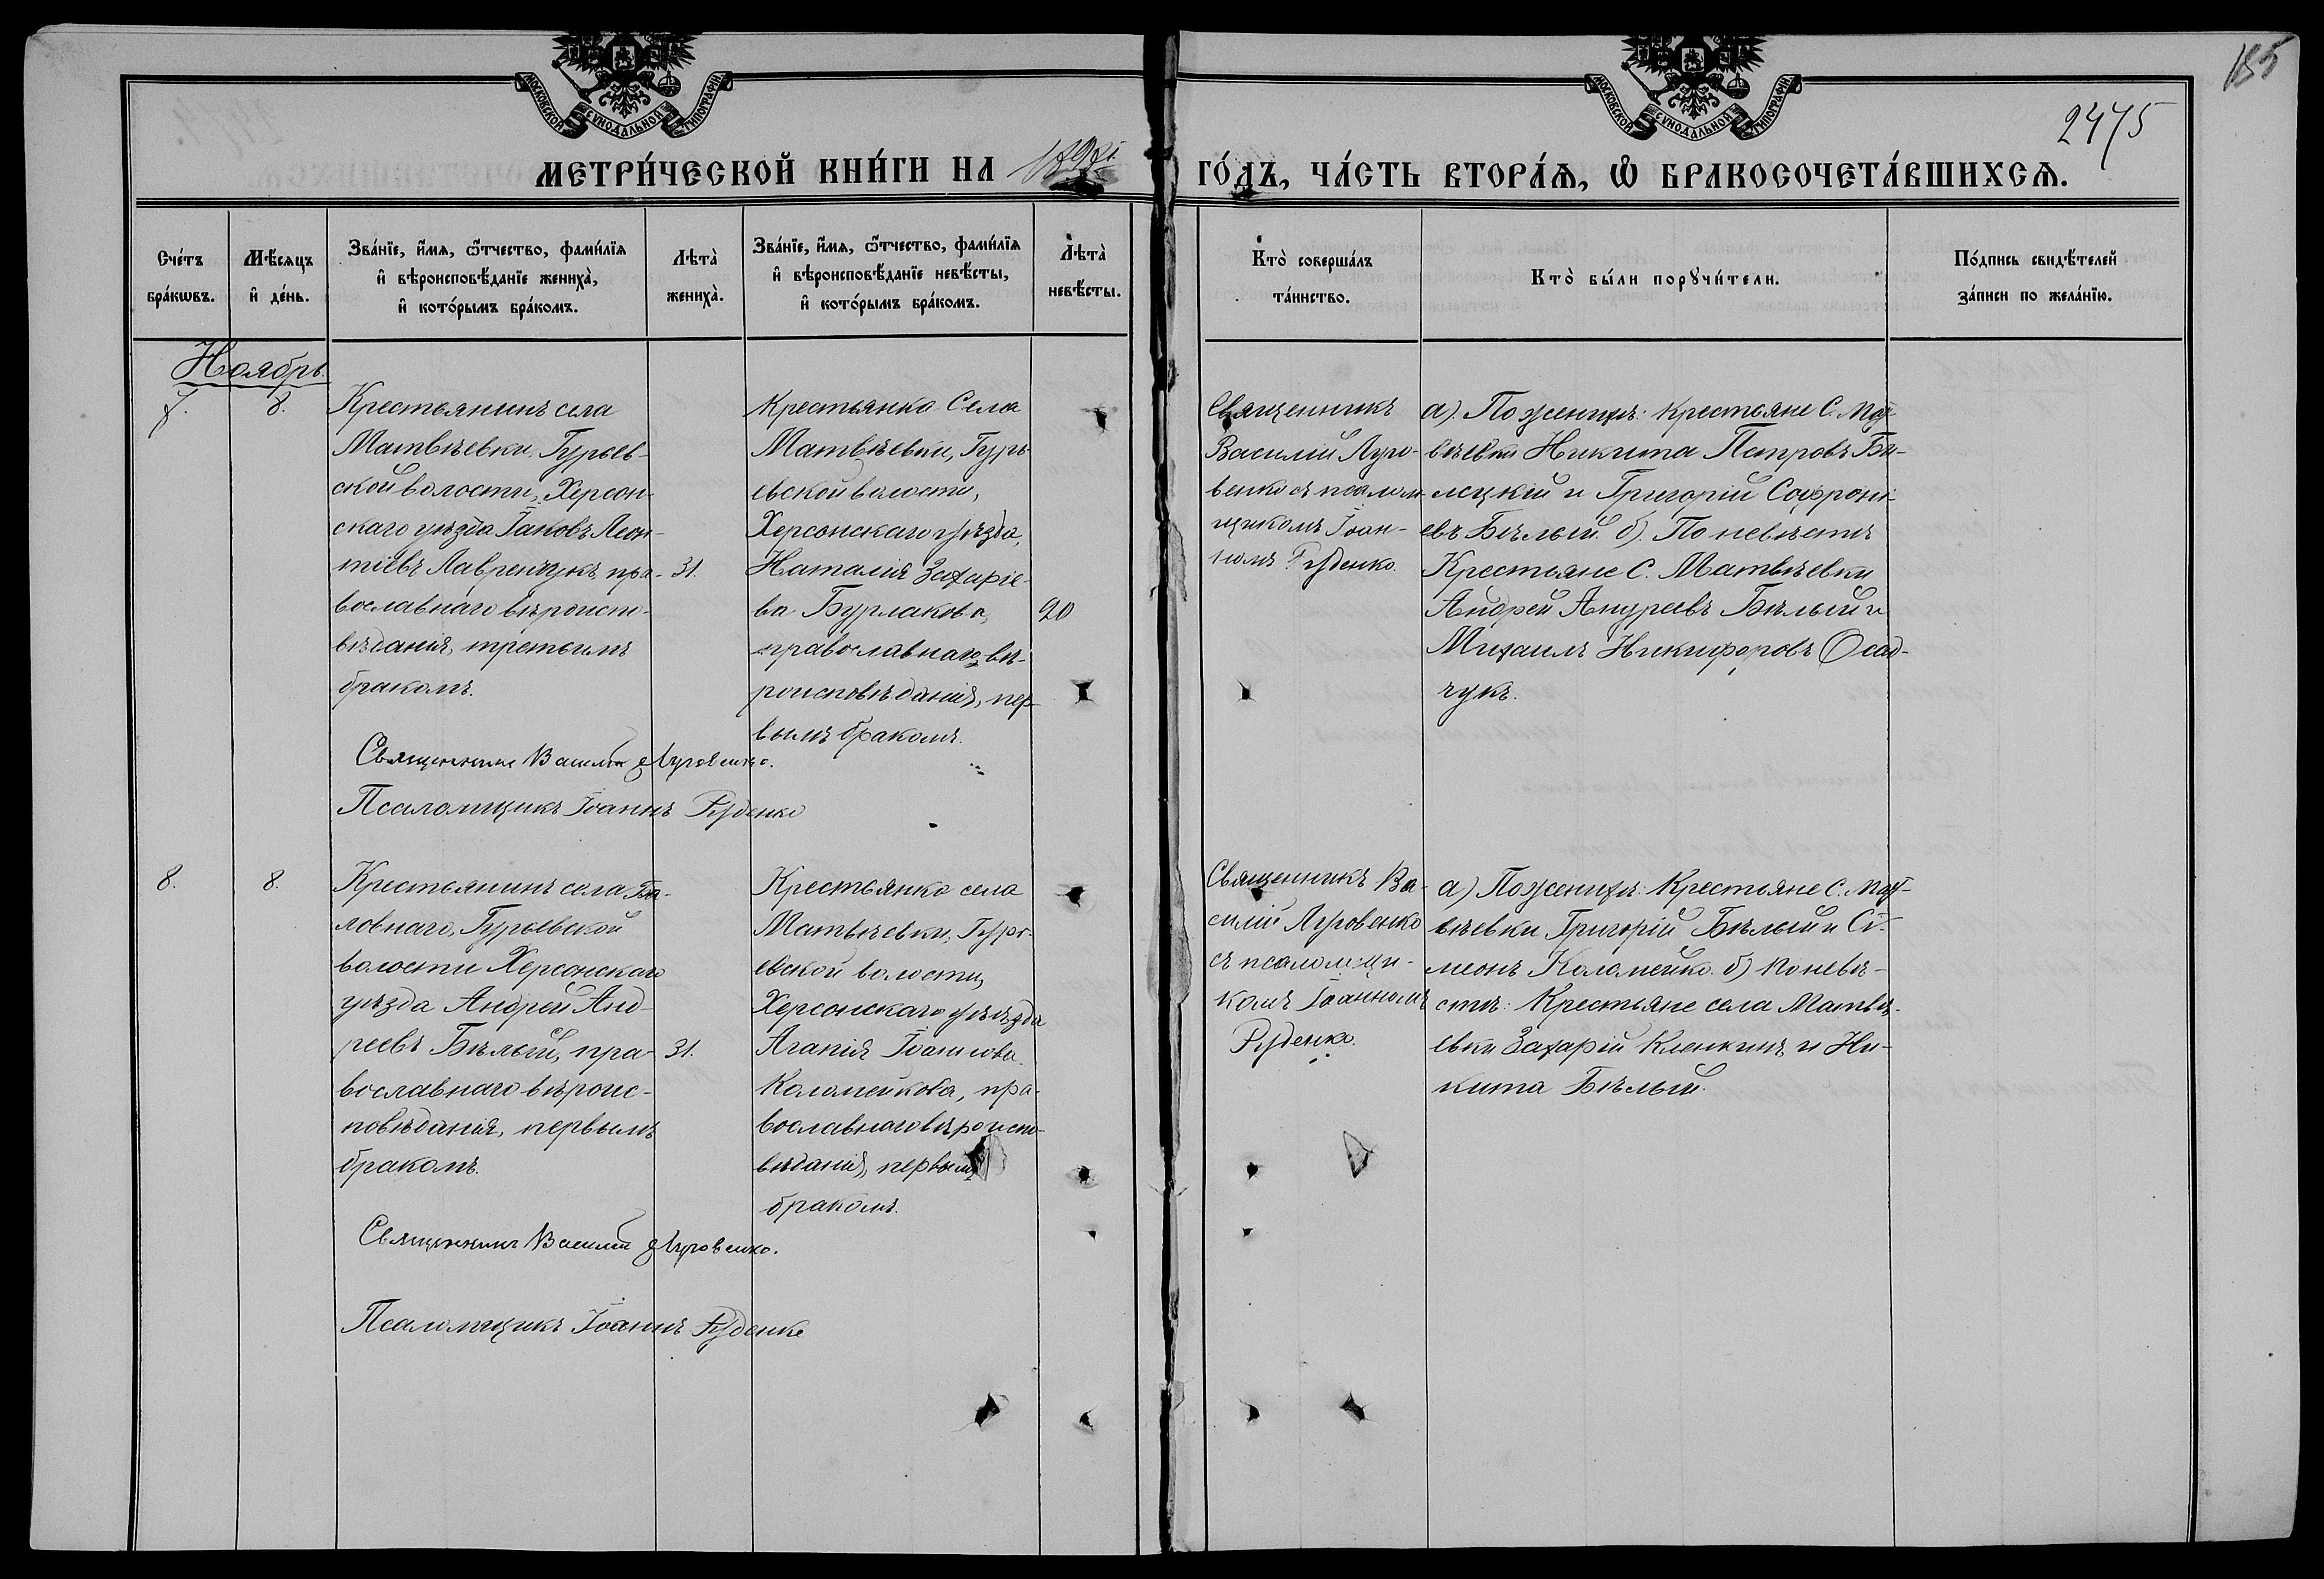 185
2475
МОСКОВСКОЙ СѴНОДАЛЬНОЙ ТИПОГРАФІИ
МОСКОВСКОЙ СѴНОДАЛЬНОЙ ТИПОГРАФІИ
МЕТРИ́ЧЕСКОЙ КНИ́ГИ НА
ГО́ДЪ, ЧА́СТЬ ВТОРА́Ѧ, Ѿ БРАКОСОЧЕТА́ВШИХСѦ.
Сче́тъ
бра́кѡвъ.
Мѣ́сяцъ
и҆ де́нь.
Зва́нїе, и҆́мѧ, ѻ҆́тчество, фами́лїѧ
и҆ вѣроисповѣ́данїе жениха̀,
и҆ кото́рымъ бра́комъ.
Лѣта̀
жениха̀.
Зва́нїе, и҆́мѧ, ѻ҆́тчество, фами́лїѧ
и҆ вѣроисповѣ́данїе невѣ́сты,
и҆ кото́рымъ бра́комъ.
Лѣта̀
невѣ́сты.
Кто̀ соверша́лъ
та́инство.
Кто̀ бы́ли порꙋчи́тели.
По́дпись свидѣ́телей
за́писи по жела́нїю.
Ноябрь.
7.
8.
Крестьянинъ села
Матвѣевки, Гурьев-
ской волости, Херсон-
скаго уѣзда Іаковъ Леон-
тіевъ Лавренчукъ, пра-
вославнаго вѣроиспо-
вѣданія, третьимъ
бракомъ.
31.
Крестьянка Села
Матвѣевки, Гурь-
евской волости,
Херсонскаго уѣзда,
Наталія Захаріе-
ва Бурлакова,
православнаго вѣ-
роисповѣданія, пер-
вымъ бракомъ.
20
Священникъ
Василій Луго-
венко съ псалом-
щикомъ Іоан-
номъ Руденко.
а). По женихѣ: Крестьяне С. Мат-
вѣевки Никита Петровъ Би-
лецкій и Григорій Софроні-
евъ Бѣлый. б). По невѣстѣ
Крестьяне С. Матвѣевки
Андрей Андреевъ Бѣлый и
Михаилъ Никифоровъ Осад-
чукъ.
Священникъ Василій Луговенко.
Псаломщикъ Іоаннъ Руденко
8.
8.
Крестьянинъ села Ба-
ловнаго, Гурьевской
волости Херсонскаго
уѣзда Андрей Анд-
реевъ Бѣлый, пра-
вославнаго вѣроис-
повѣданія, первымъ
бракомъ.
31.
Крестьянка села
Матвѣевки, Гурь-
евской волости,
Херсонскаго уѣзда
Агапія Іоаннова
Коломейкова, пра-
вославнаго вѣроиспо-
вѣданія, первымъ
бракомъ.
Священникъ Ва-
силій Луговенко
съ псаломщи-
комъ Іоанномъ
Руденко.
а) По женихѣ: Крестьяне С. Мат-
вѣевки Григорій Бѣлый и Сѵ-
меонъ Коломейко. б) По невѣ-
стѣ: Крестьяне села Матвѣ-
евки Захарій Кленкинъ и Ни-
кита Бѣлый.
Священникъ Василій Луговенко.
Псаломщикъ Іоаннъ Руденко